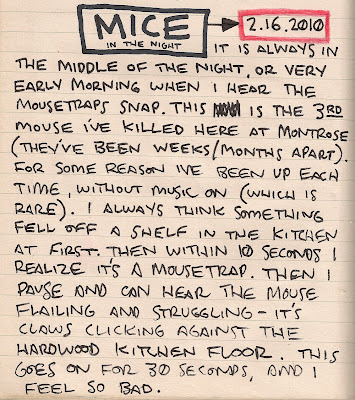 MICE
IN THE NIGHT
2.16.2010
IT IS ALWAYS IN
THE MIDDLE OF THE NIGHT, OR VERY
EARLY MORNING WHEN I HEAR THE
MOUSETRAPS SNAP. THIS IS THE 3RD
MOUSE I'VE KILLED HERE AT MONTROSE
(THEY'VE BEEN WEEKS/MONTHS APART).
FOR SOME REASON I'VE BEEN UP EACH
TIME, WITHOUT MUSIC ON (WHICH IS
RARE). I ALWAYS THINK SOMETHING
FELL OFF A SHELF IN THE KITCHEN
AT FIRST. THEN WITHIN 10 SECONDS I
REALIZE IT'S A MOUSETRAP. THEN I
PAUSE AND CAN HEAR THE MOUSE
FLAILING AND STRUGGLING - IT'S
CLAWS CLICKING AGAINST THE
HARDWOOD KITCHEN FLOOR. THIS
GOES ON FOR 30 SECONDS, AND I
FEEL SO BAD.